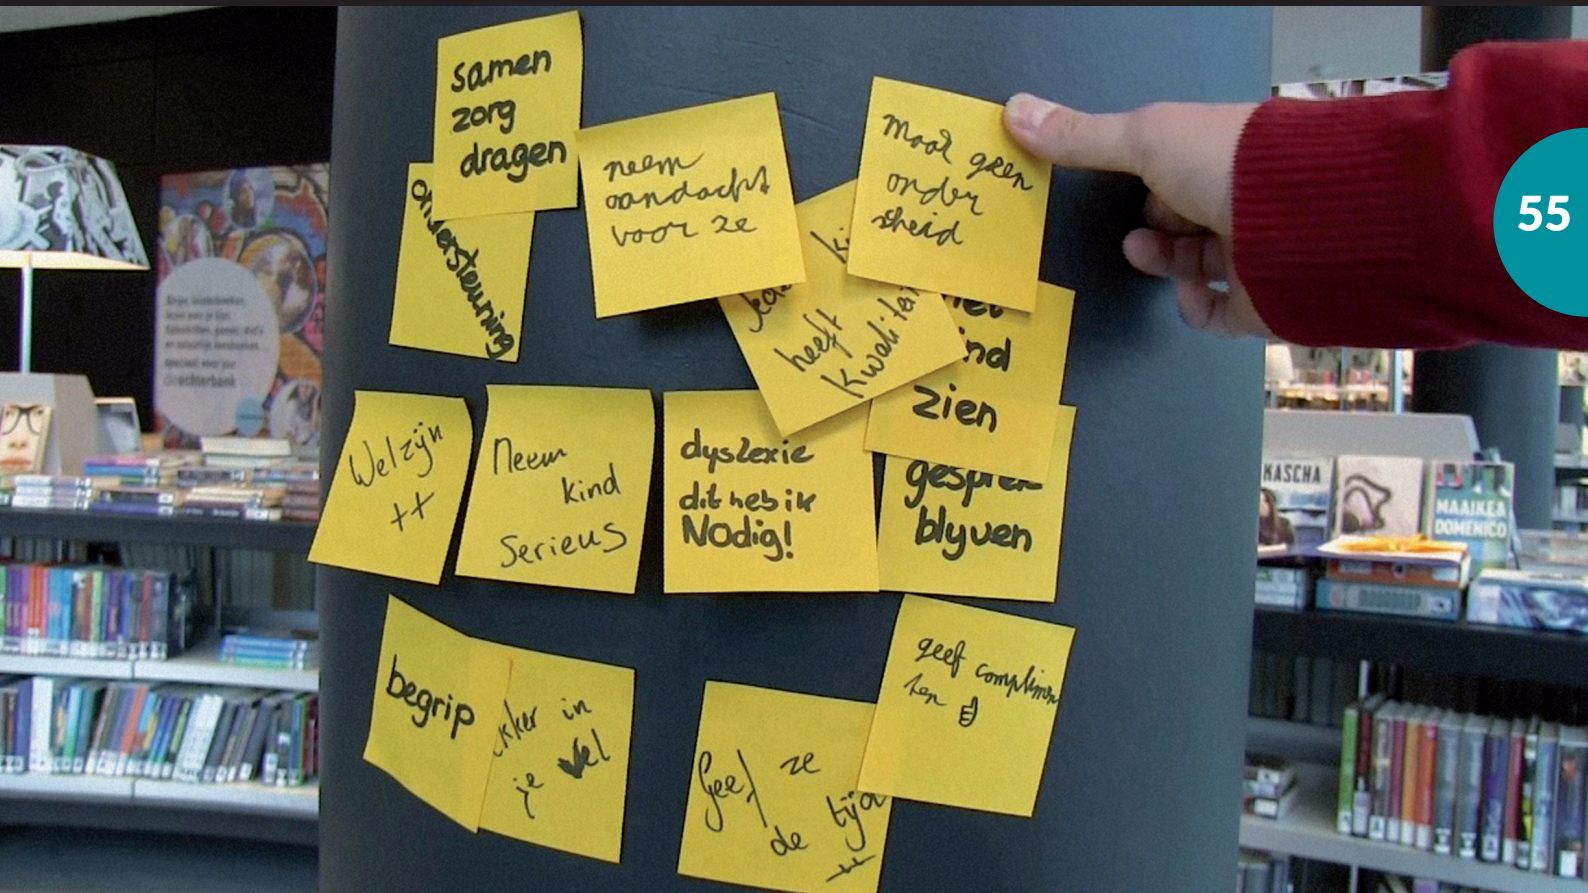 samen
zorg
dragen
ondersteuning
neem
aandacht
voor ze
maak geen
onder
scheid
heeft
kwaliteit
zien
Welzijn
++
Neem
kind
serieus
dyslexie
dit heb ik
Nodig!
blyven
begrip
in
je vel
Geef ze
de tijd
geef complimen
ten
55
KASCHA
MAAIKE
DOMENICO
speciaal voor jou